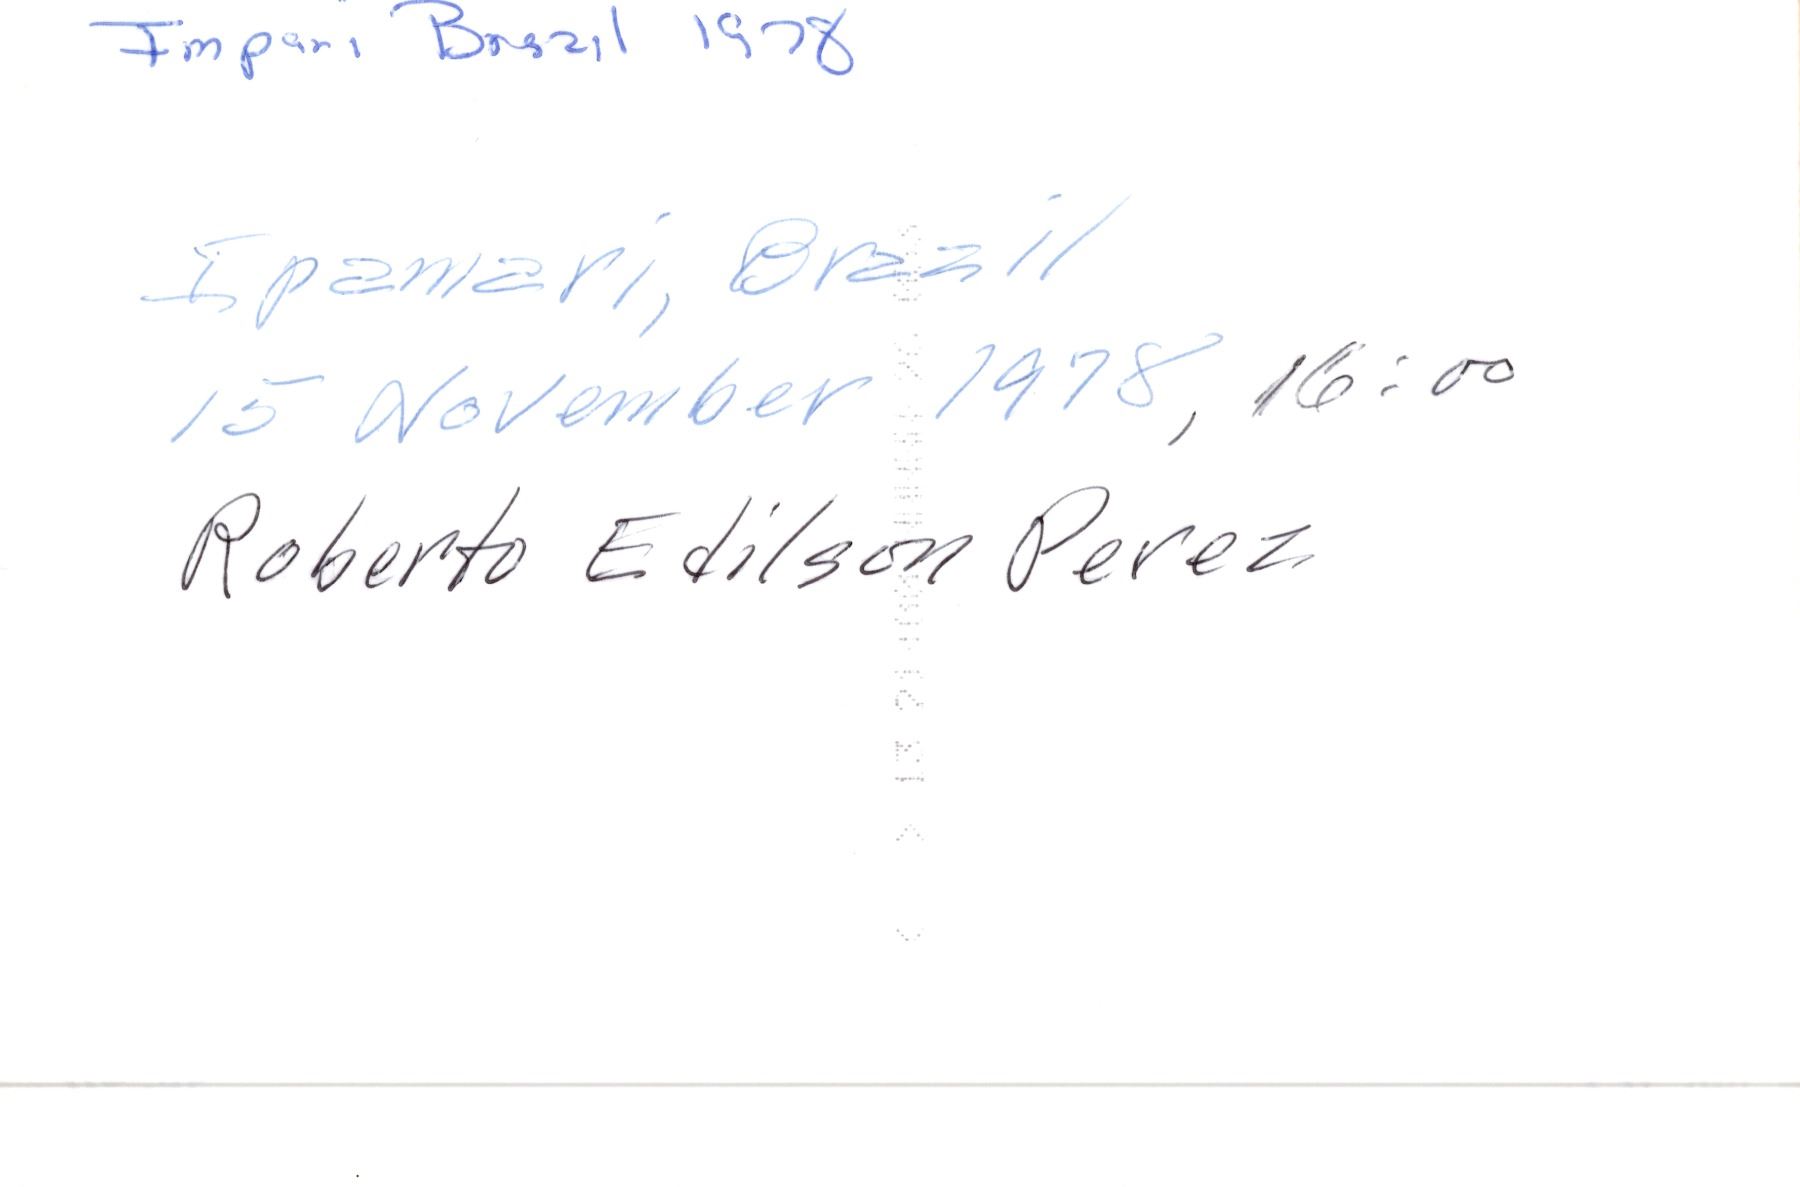 Impari Brazil 1978
Ipamari, Brazil
15 November 1978, 16:00
Roberto Edilson Perez